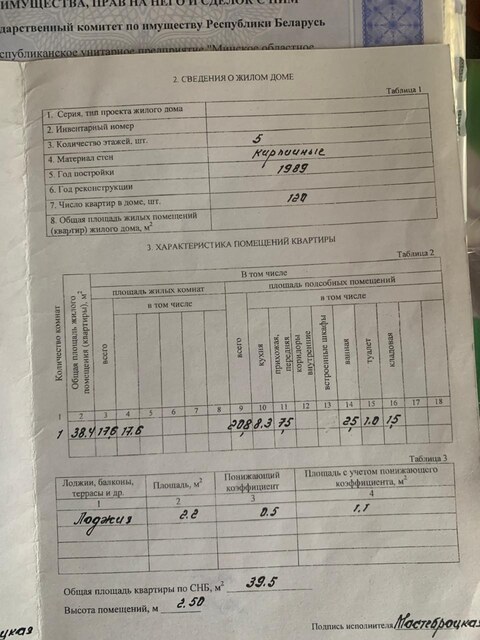 ИМУЩЕСТВА, ПРАВ НА НЕГО И СДЕЛОК С НИМ
дарственный комитет по имуществу Республики Беларусь
спубликанское унитарное предприятие "Минское областное
2. СВЕДЕНИЯ О ЖИЛОМ ДОМЕ
Таблица 1
1. Серия, тип проекта жилого дома
2. Инвентарный номер
3. Количество этажей, шт. 5
4. Материал стен кирпичные
5. Год постройки 1989
6. Год реконструкции
7. Число квартир в доме, шт. 120
8. Общая площадь жилых помещений
(квартир) жилого дома, м²
3. ХАРАКТЕРИСТИКА ПОМЕЩЕНИЙ КВАРТИРЫ
Таблица 2
Количество комнат
Общая площадь жилого помещения (квартиры), м²
В том числе
площадь жилых комнат
площадь подсобных помещений
в том числе
в том числе
всего
всего
кухня
прихожая, передняя
коридоры внутренние
встроенные шкафы
ванная
туалет
кладовая
1 2 3 4 5 6 7 8 9 10 11 12 13 14 15 16 17 18
1 38.4 17,6 17.6 20,8 8.3 7,5 2,5 1.0 1,5
Таблица 3
Лоджии, балконы, террасы и др.
Площадь, м²
Понижающий коэффициент
Площадь с учетом понижающего коэффициента, м²
1 2 3 4
Лоджия 2.2 0.5 1.1
Общая площадь квартиры по СНБ, м² 39.5
Высота помещений, м 2.50
Подпись исполнителя